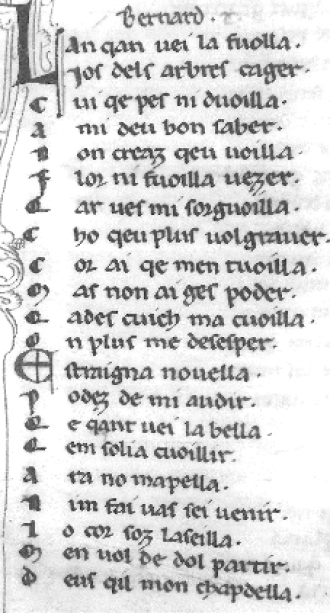 Bernard.
Lan qan uei la fuolla.
Jos dels arbres cager.
Cui qe pes ni duoilla.
Ami deu bon saber.
Non creaz qeu uoilla.
Flor ni fuoilla uezer.
Car ues mi sorguoilla.
Cho qeu plus uolgrauer.
Cor ai qe men tuoilla.
Mas non ai ges poder.
Cades cuich ma cuoilla.
On plus me desesper.
Estraigna nouella.
Podez de mi audir.
Qe qant uei la bella.
Qem solia cuoillir.
Ara no mapella.
Nim fai uas sei uenir.
Lo cor soz laseilla.
Men uol de dol partir.
Deus qil mon chapdella.